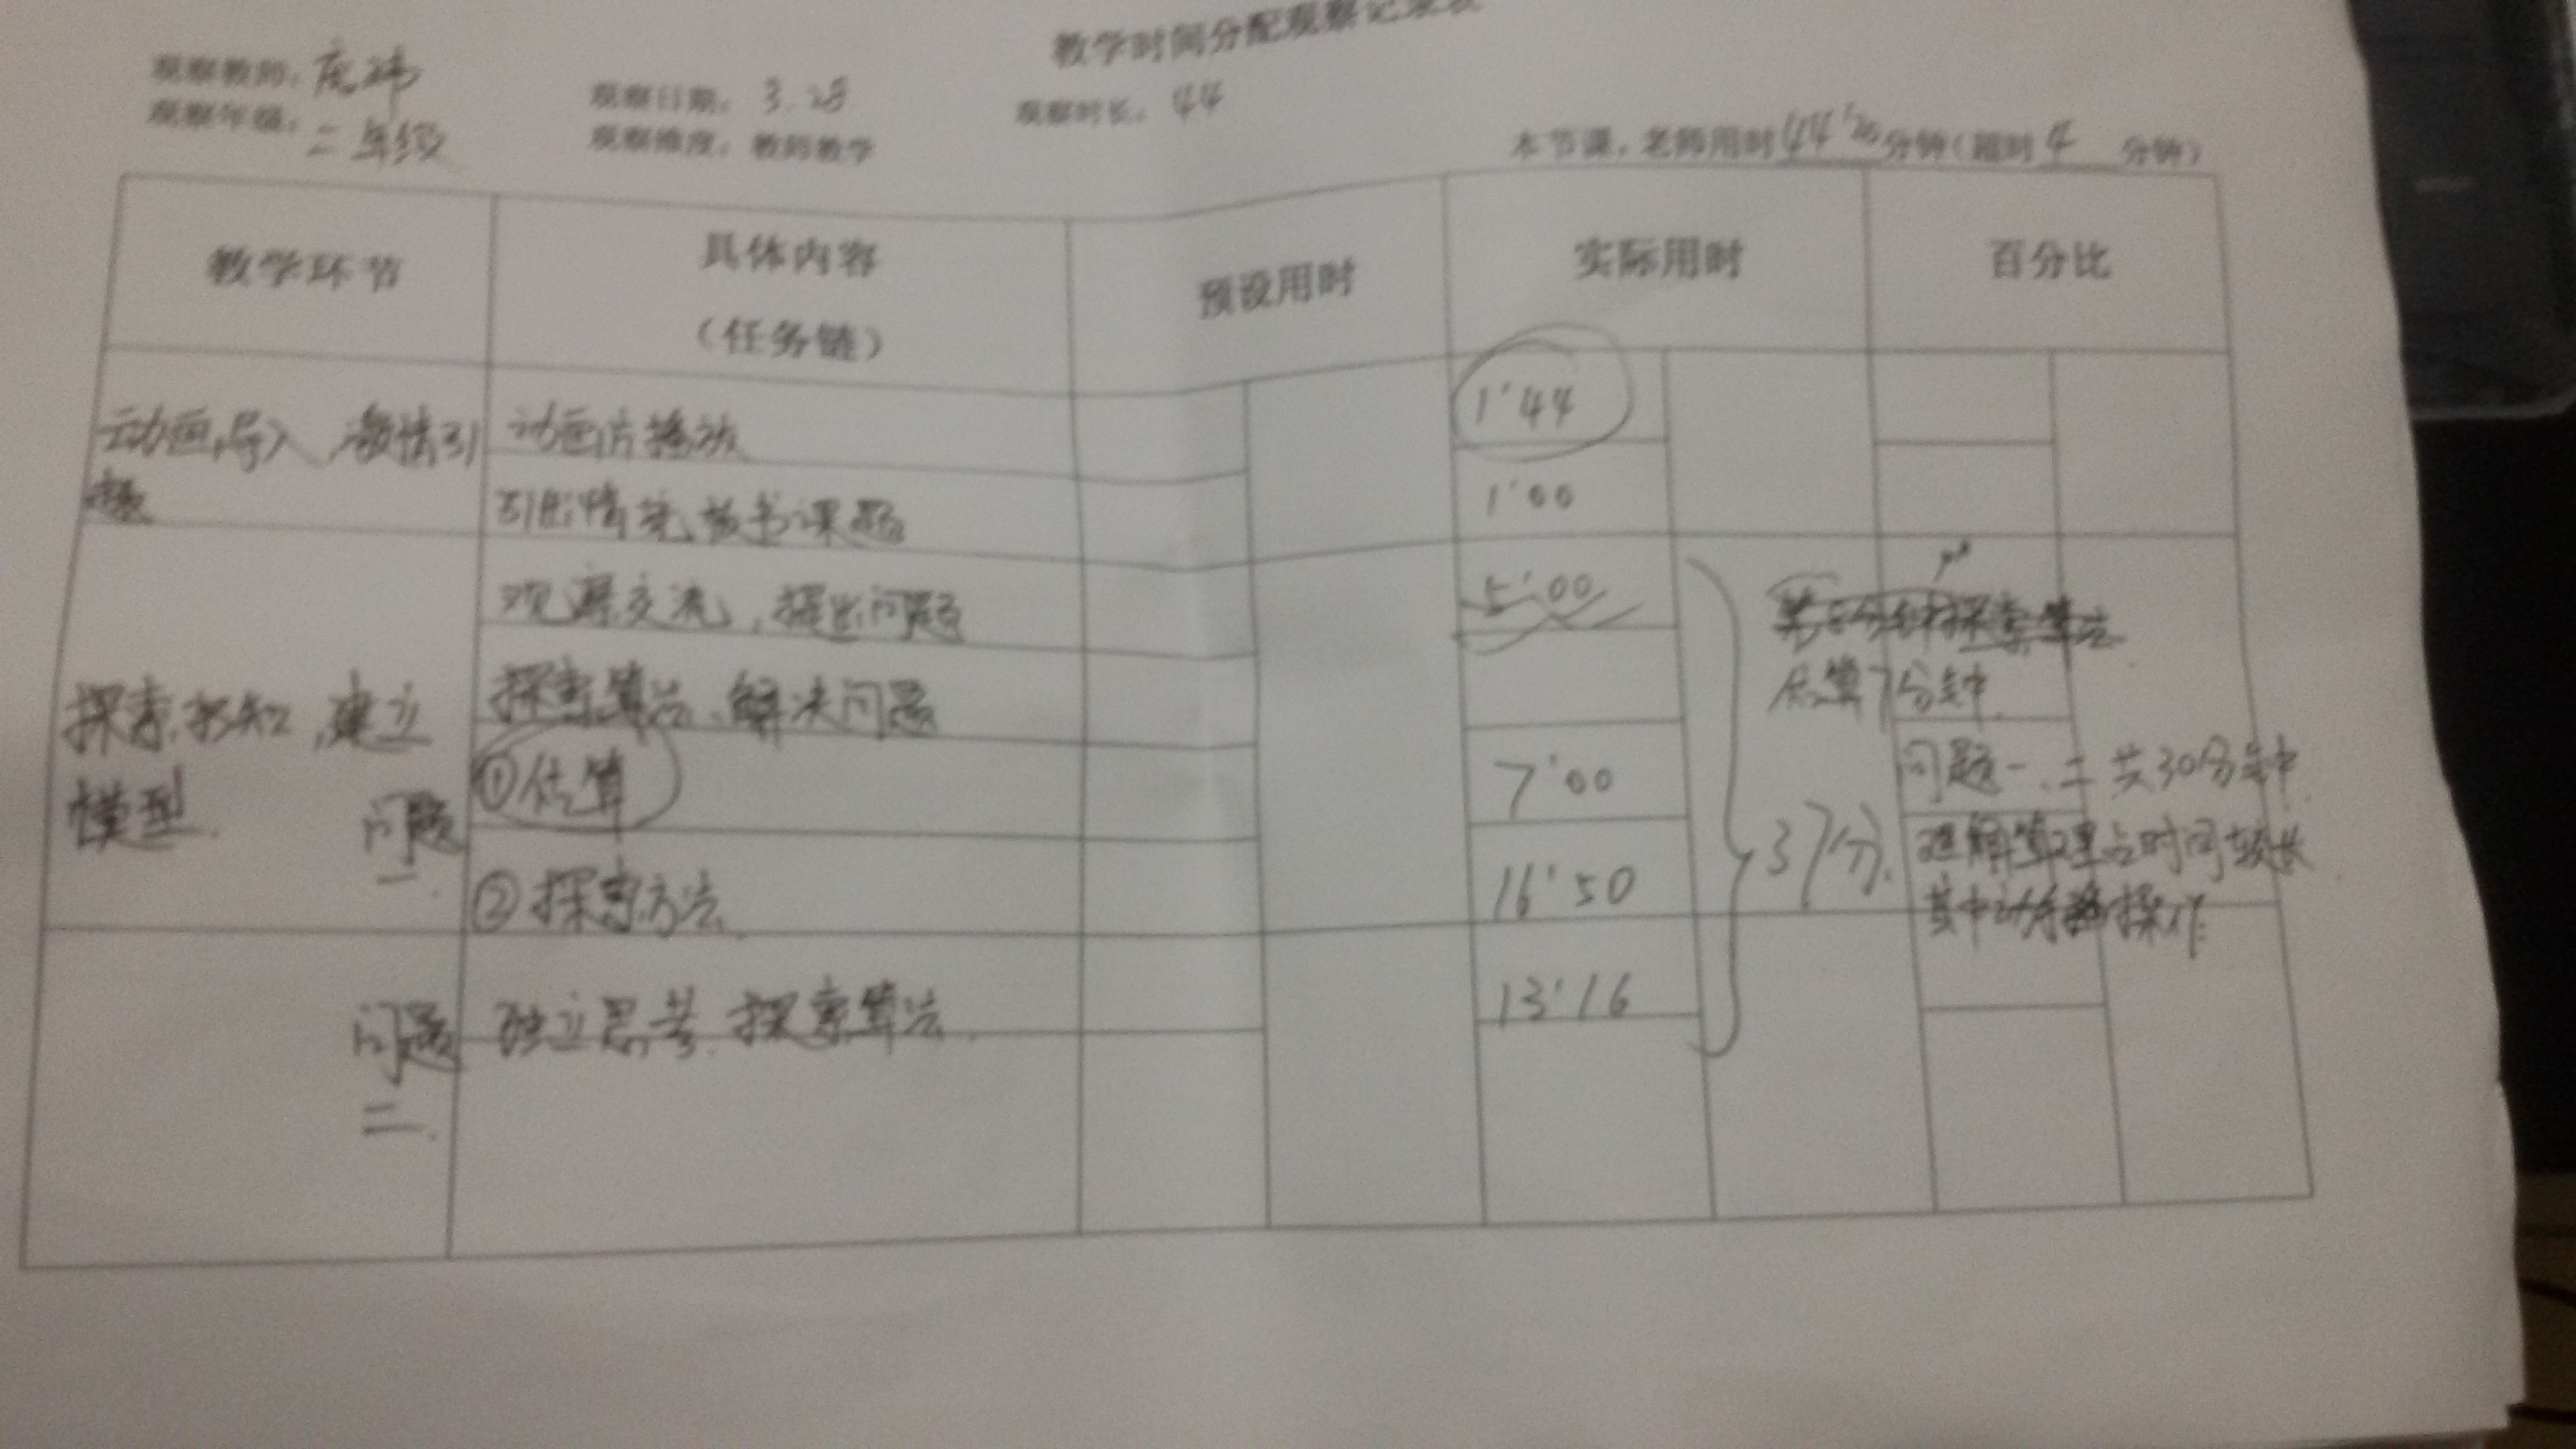 教学时间分配观察记录表
观察教师：
观察日期：3.28
观察时长：44
观察年级：二年级
观察维度：教师教学
本节课，老师用时44'分钟（超时4 分钟）
教学环节
具体内容
（任务链）
预设用时
实际用时
百分比
动画导入，激情引
题
动画片播放
1'44
引出情境，板书课题
1'00
观察交流，提出问题
5'00
探索算法，解决问题
估算7分钟
探索新知，建立
模型
问题
一.
①估算
7'00
问题一、二共30分钟
②探索方法
16'50
37分.
理解算理占时间较长
其中动手操作
问题
二.
独立思考，探索算法.
13'16